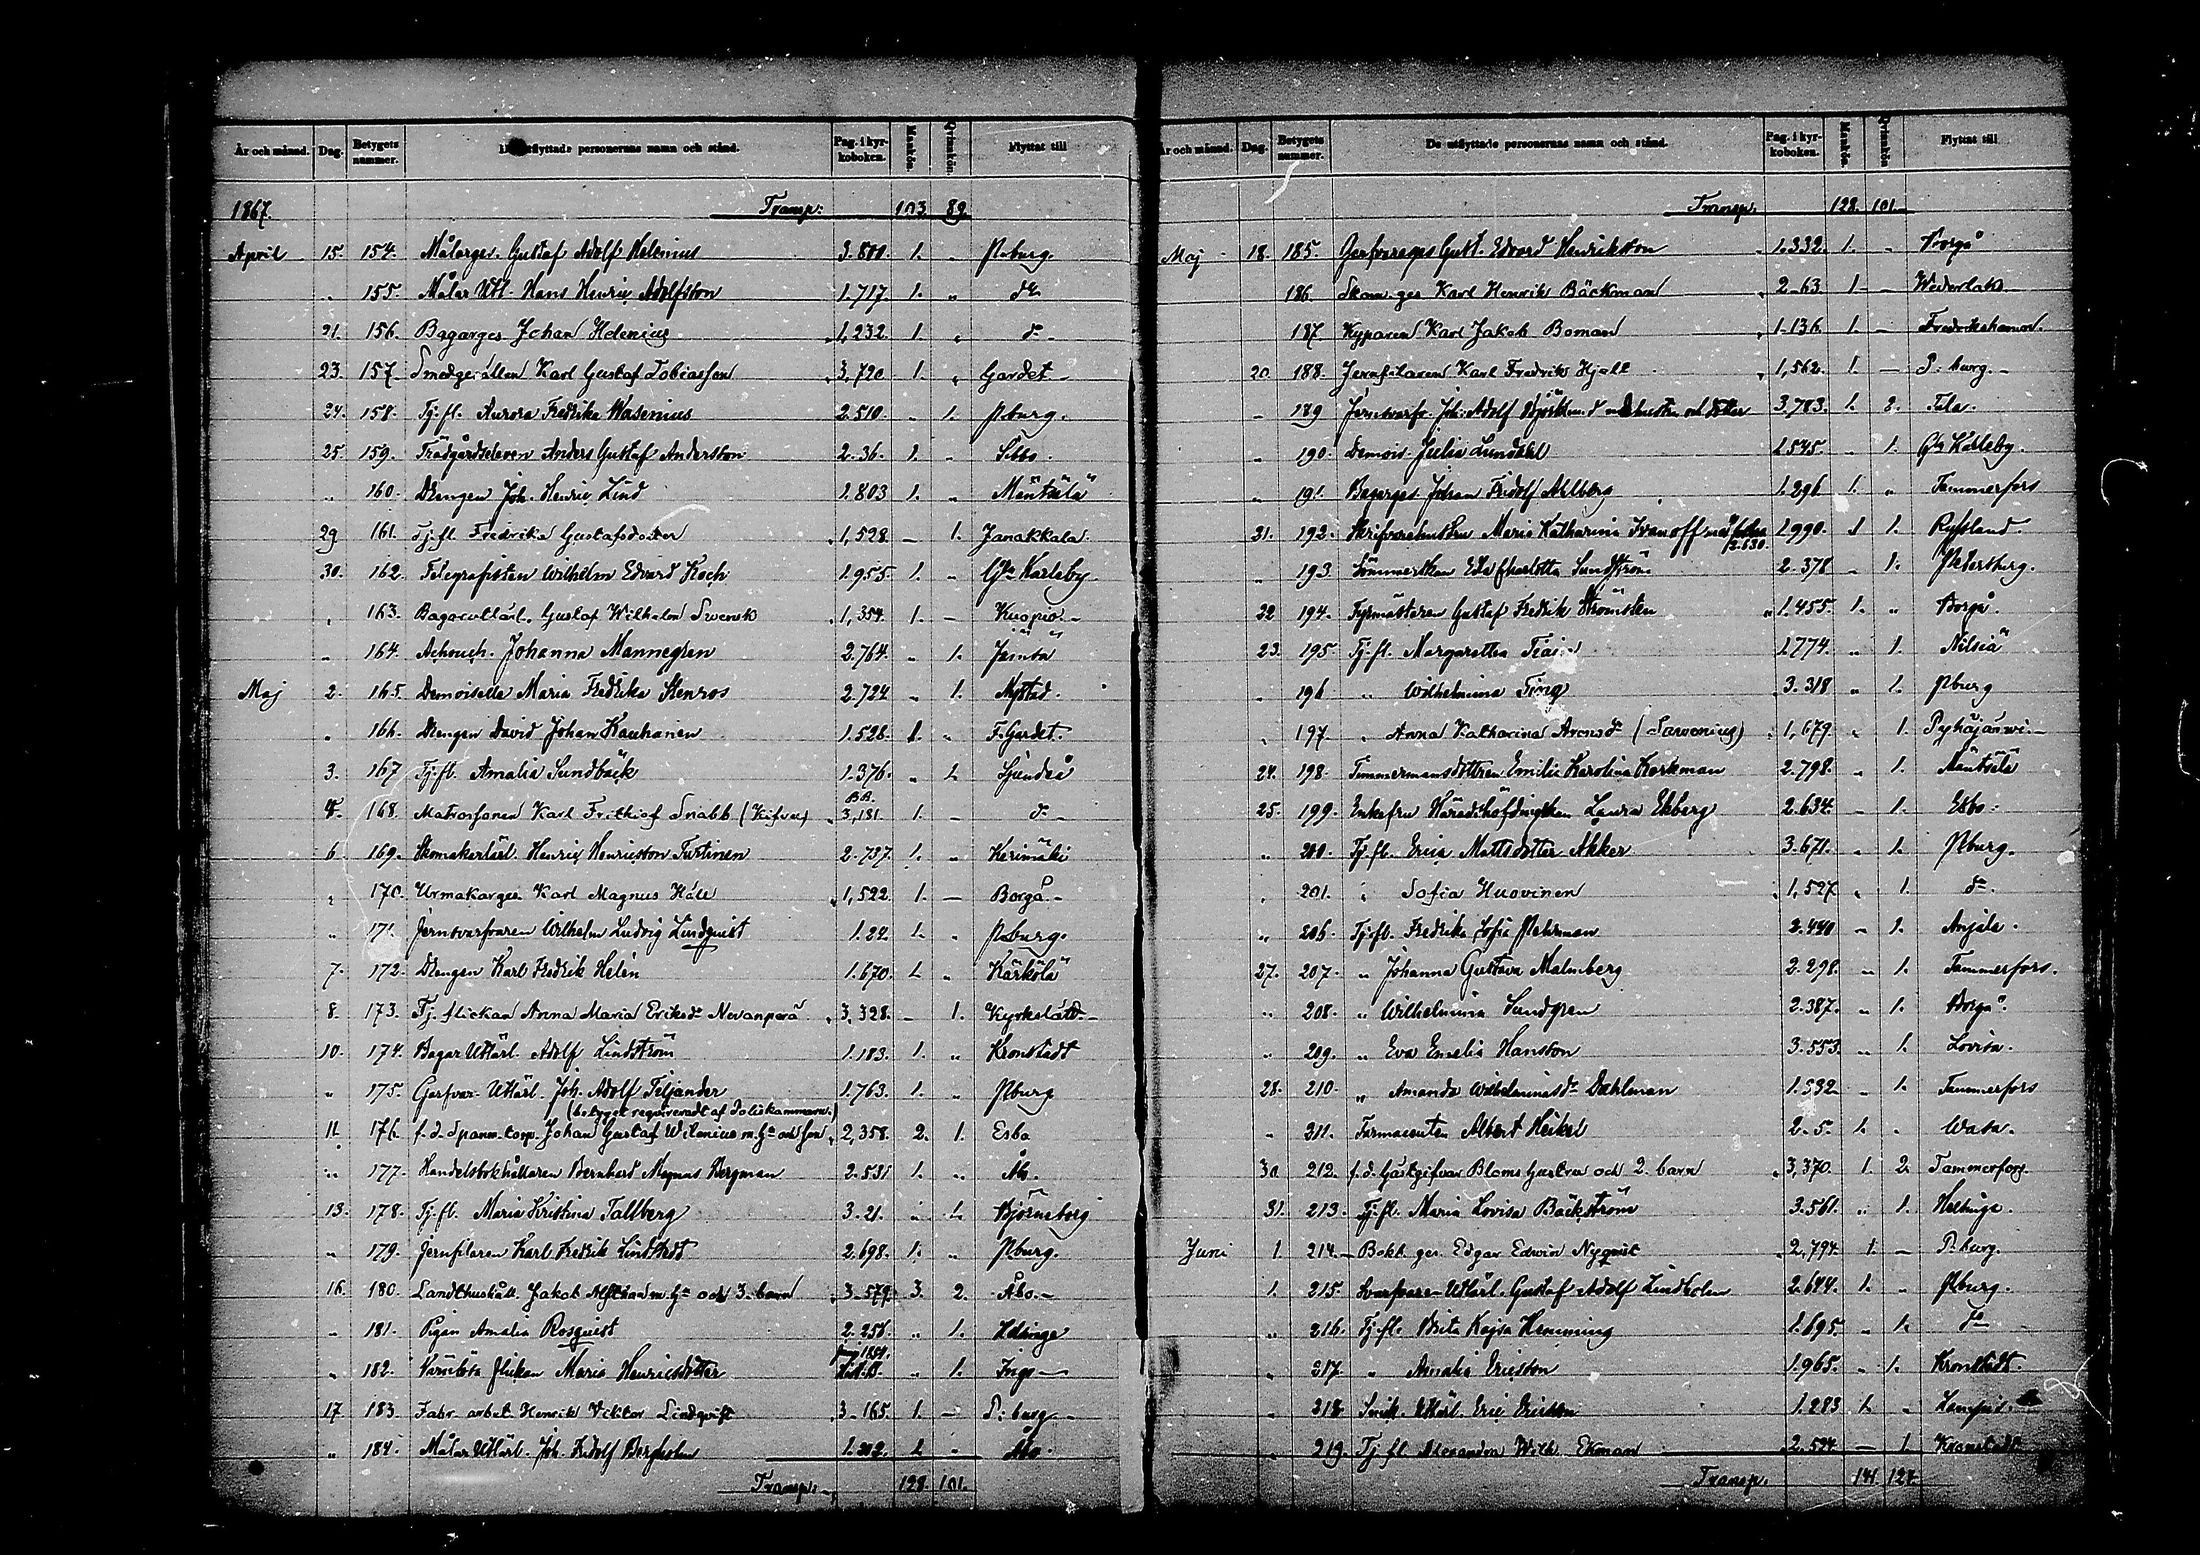 År och månad. Dag. Betygets nummer. De utflyttade personernas namn och stånd. Pag. i kyrkoboken. Mankön. Qvinnkön. Flyttat till
1867. Transp: 103 89
April 15. 154. Målarges. Gustaf Adolf Helenius 3.800. 1. " P.burg.
" 155. Målar Utl. Hans Henric Adolfsson 1.717. 1. " do
21. 156. Bagarges Johan Helenius 1,232. 1. " do
23. 157. Smedgesällen Karl Gustaf Tobiasson 3,720 1. " Gardet
24. 158. Tj.fl. Aurora Fredrika Wasenius 2.510. " 1. P.burg.
25. 159. Trädgårdseleven Anders Gustaf Andersson 2.36. 1. " Sibbo.
" 160. Drengen Joh. Henric Lind 1.803 1. " Mäntsälä
29 161. Tj.fl. Fredrika Gustafsdotter 1,528 – 1. Janakkala
30. 162. Telegrafisten Wilhelm Edvard Koch 1.955. 1. " Gla Karleby
" 163. Gustaf Wilhelm Swensk 1,354. 1. – Kuopio.
" 164. Johanna Mannegren 2.764. " 1. Jämsä
Maj 2. 165. Demoiselle Maria Fredrika Stenros 2.724 " 1. Nystad.
" 166. Drengen David Johan Kauhanen 1.528. 1. " F. Gardet.
3. 167 Tj.fl. Amalia Sundbäck 1.376. " 1. Sjundeå
4. 168. Matrossonen Karl Frithiof Snabb 3,181. 1. – do
6. 169. Skomakerlärl. Henric Henricsson Turtinen 2.737. 1. " Kerimäki
" 170. Urmakarges. Karl Magnus Håll 1,522. 1. – Borgå.
" 171. Jernsvarfvaren Wilhelm Ludvig Lindquist 1.22. 1. " P.burg.
7. 172. Drengen Karl Fredrik Helén 1.670. 1. " Kärkölä
8. 173. Tj. flickan Anna Maria Eriksdr Nevanperä 3,328. – 1. Kyrkslätt.
10. 174. Bagar Utlärl. Adolf Lindström 1.183. 1. " Kronstadt
" 175. Garfvar-Utlärl. Joh. Adolf Tiljander 1.763. 1. " P.burg
(betyget requireradt af Poliskammaren.)
11. 176. f.d. Spanm. korp. Johan Gustaf Wilenius m. Ha och son 2,358. 2. 1. Esbo
" 177. Handelsbokhållaren Bernhard Magnus Bergman 2.531 1. " Åbo.
13. 178. Tj.fl. Maria Kristina Tallberg 3.21. " 1. Björneborg
" 179. Jernfilaren Karl Fredrik Lindstedt 2.698. 1. " P.burg.
16. 180. Landthushåll. Jakob Alfthan m. Ha och 3 barn 3.579. 3. 2. Åbo.
" 181. Pigan Amalia Rosquist 2.256. " 1. Helsinge
" 182. Värnlösa flickan Maria Henricsdotter " 1. Ingo
17. 183. Fabr. arbet. Henrik Viktor Lindqvist 3.165. 1. – P:burg
" 184. Målar Utlärl. Joh. Fridolf Bergholm 1.202. 1. " Åbo
Transp. 128. 101.
År och månad. Dag. Betygets nummer. De utflyttade personernas namn och stånd. Pag. i kyrkoboken. Mankön. Qvinnkön Flyttat till
Transp. 128. 101.
Maj 18. 185. Garfvareges Gust. Edvard Henriksson 1.332. 1. " Borgå
186. Skom. ges Karl Henrik Bäckman 2.63. 1. – Wederlaks.
187. Kyparen Karl Jakob Boman 1.136. 1. – Fredrikshamn.
20 188. Jernfilaren Karl Fredrik Hjelt 1,562. 1. – P:burg.
" 189 Jernsvarfv. Joh: Adolf och dotter 3,783. 1. 2.
" 190. Demois. Julia Lundahl 1.545. " 1. Gla Karleby.
" 191. Bagarges Johan Fridolf Ahlberg 1.296 1. " Tammerfors
21. 192. Skrifvarehustrun Maria Katharina Ivanoff 1.990. 1 1. Ryssland.
2.630.
" 193. Sömmerskan Eda Charlotta Sundström 2.378 " 1. Petersburg.
22 194. Fyrmästaren Gustaf Fredrik Strömsten 1.455. 1. " Borgå.
23. 195. Tj.fl. Margaretha 1.774. " 1. Nilsiä
" 196 " Wilhelmina 3.318 " 1. P.burg
" 197. " Anna Katharina Aronsdr (Sarvenius) 1,679. " 1. Pyhäjärwi.
24. 198. Timmermansdottren Emilia Karolina Korkman 2.798. " 1. Mäntsälä
25. 199. Enkefru Häradshöfdingskan Laura Ekberg 2.634. – 1. Esbo.
" 200. Tj.fl. Erica Mattsdotter Akker 3.671. " 1. P.burg.
" 201. " Sofia Huovinen 1,527. " 1. do.
" 206. Tj.fl. Fredrika Sofia Pehrman 2.440 – 1. Anjala.
27. 207. " Johanna Gustava Malmberg 2.298. " 1. Tammerfors.
" 208. " Wilhelmina Sundgren 2.387. " 1. Borgå.
" 209. " Eva Emelia Hansson 3.553. " 1. Lovisa.
28. 210. " Amanda Wilhelminasdr Dahlman 1.532 " 1. Tammerfors
" 211. Farmaceuten Albert Heikel 2.5. 1. " Wasa.
30 212. f.d. Gästgifvar Bloms hustru och 2. barn 3,370. 1. 2. Tammerfors.
31. 213. Tj.fl. Maria Lovisa Bäckström 3.561. " 1. Helsinge.
Juni 1. 214. Bokh. ges. Edgar Edwin Nyqvist 2,794. 1. – P:burg.
1. 215. Svarfvare-Utlärl. Gustaf Adolf Lindholm 2.644. 1. " P.burg.
" 216. Tj.fl. Brita Kajsa Hemming 1.695. " 1. do
" 217. " Amalia Ericsson 1.965. " 1. Kronstadt.
" 218. Snick. Utlärl. Eric Ericsson 1.283 1. "
" 219. Tj.fl. Alexandra Wilh. Ekman 2.524. – 1. Kronstadt
Transp. 141. 124.